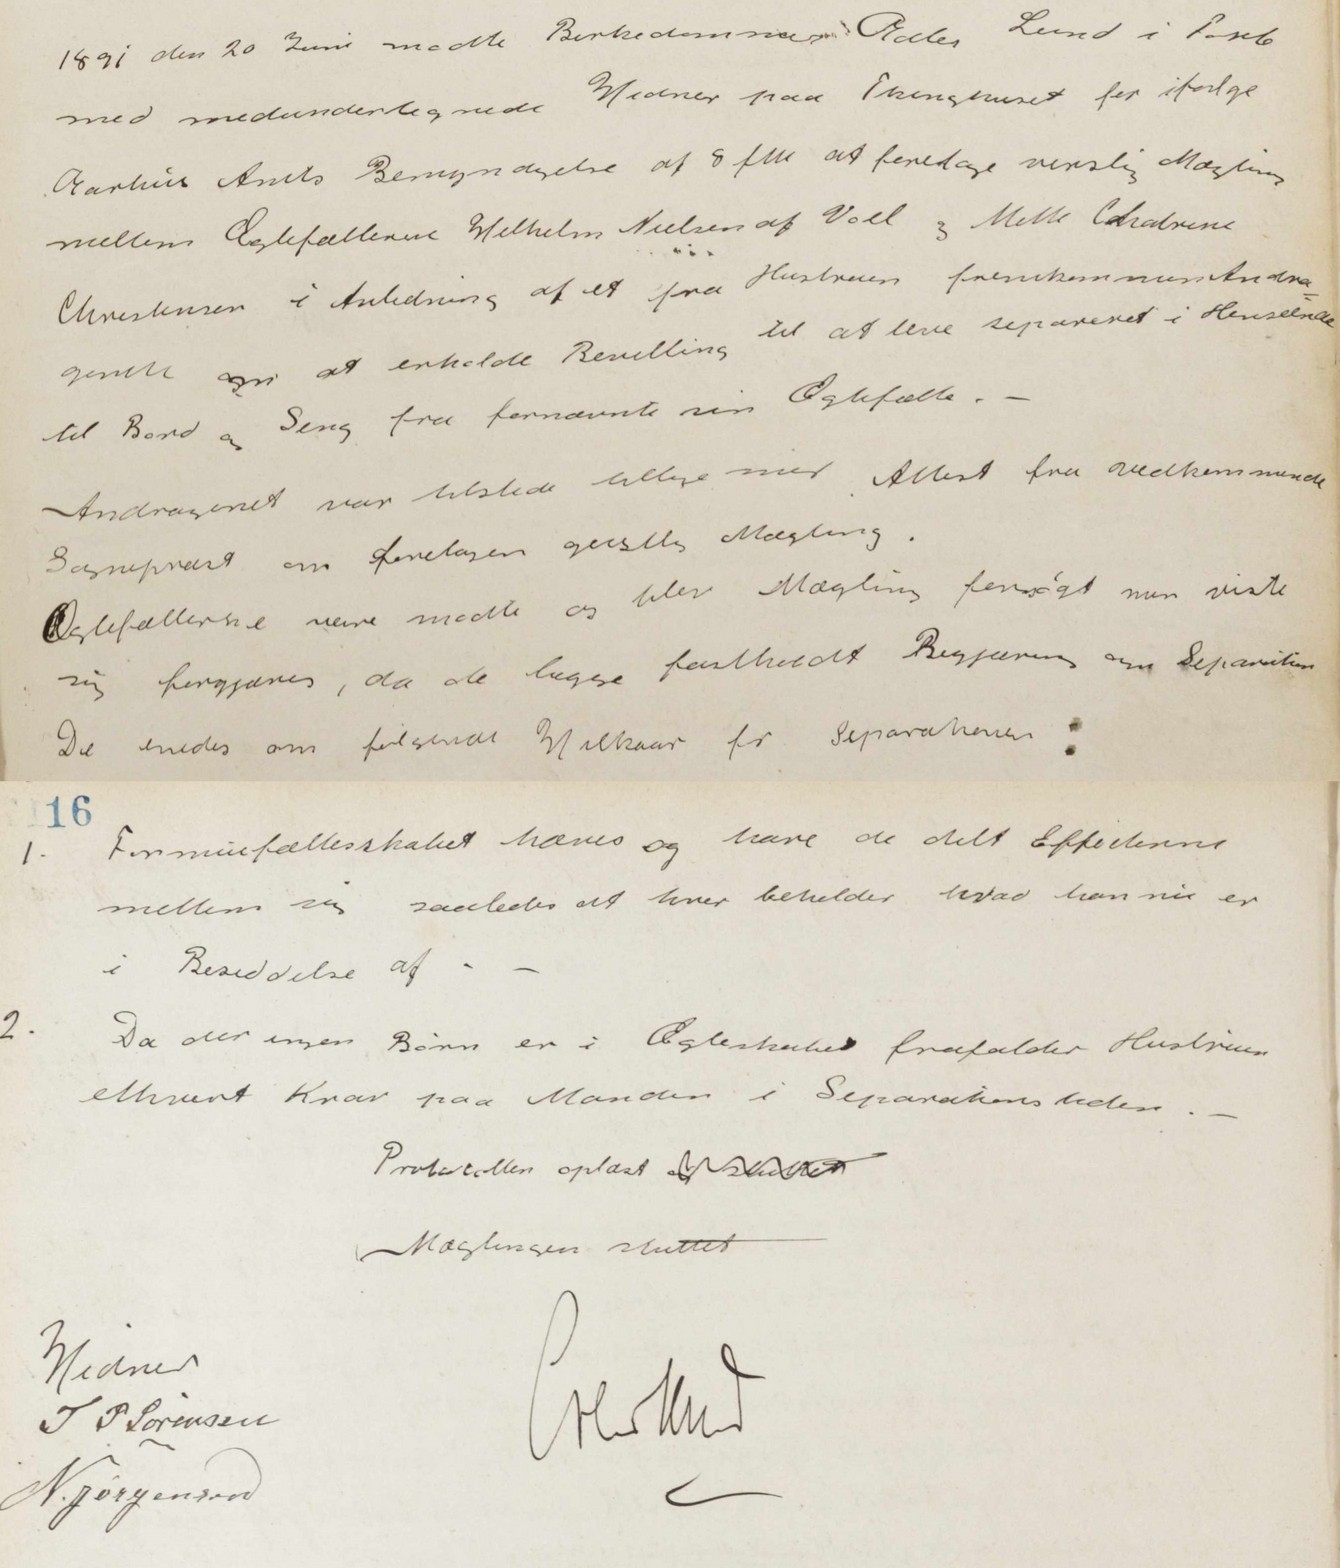 1891 den 20 Juni mødte Birkedommer Lund i
med medundertegnede Vidner paa Thinghuset for ifølge
Aarhus Amts Bemyndigelse af 8 ds at foretage verslig Mægling
mellem Ægtefællerne Vilhelm Nielsen af Voel og Mette Cathrine
Christensen i Anledning af et fra Hustruen fremkommen Andra=
gende om at erholde Bevilling til at leve separeret i Henseende
til Bord og Seng fra fornævnte sin Ægtefælle. —
Andragenet var tilstede tillige med Attest fra vedkommende
Sognepræst om foretagen geistlig Mægling.
Ægtefællerne vare mødte og blev Mægling forsøgt men viste
sig forgjæves, da de begge fastholdt Begjæring om Separation
De enedes om følgende Vilkaar for Separationen:
16
1. Formuefællesskabet hæves og have de delt Effecterne
mellem sig saaledes at hver beholder hvad han nu er
i Besiddelse af. —
2. Da der ingen Børn er i Ægteskabet frafalder Hustruen
ethvert Krav paa Manden i Separationstiden. —
Protocollen oplæst og sluttet
Mæglingen sluttet
Vidner
Lund
J P Sørensen
N. Jørgensen